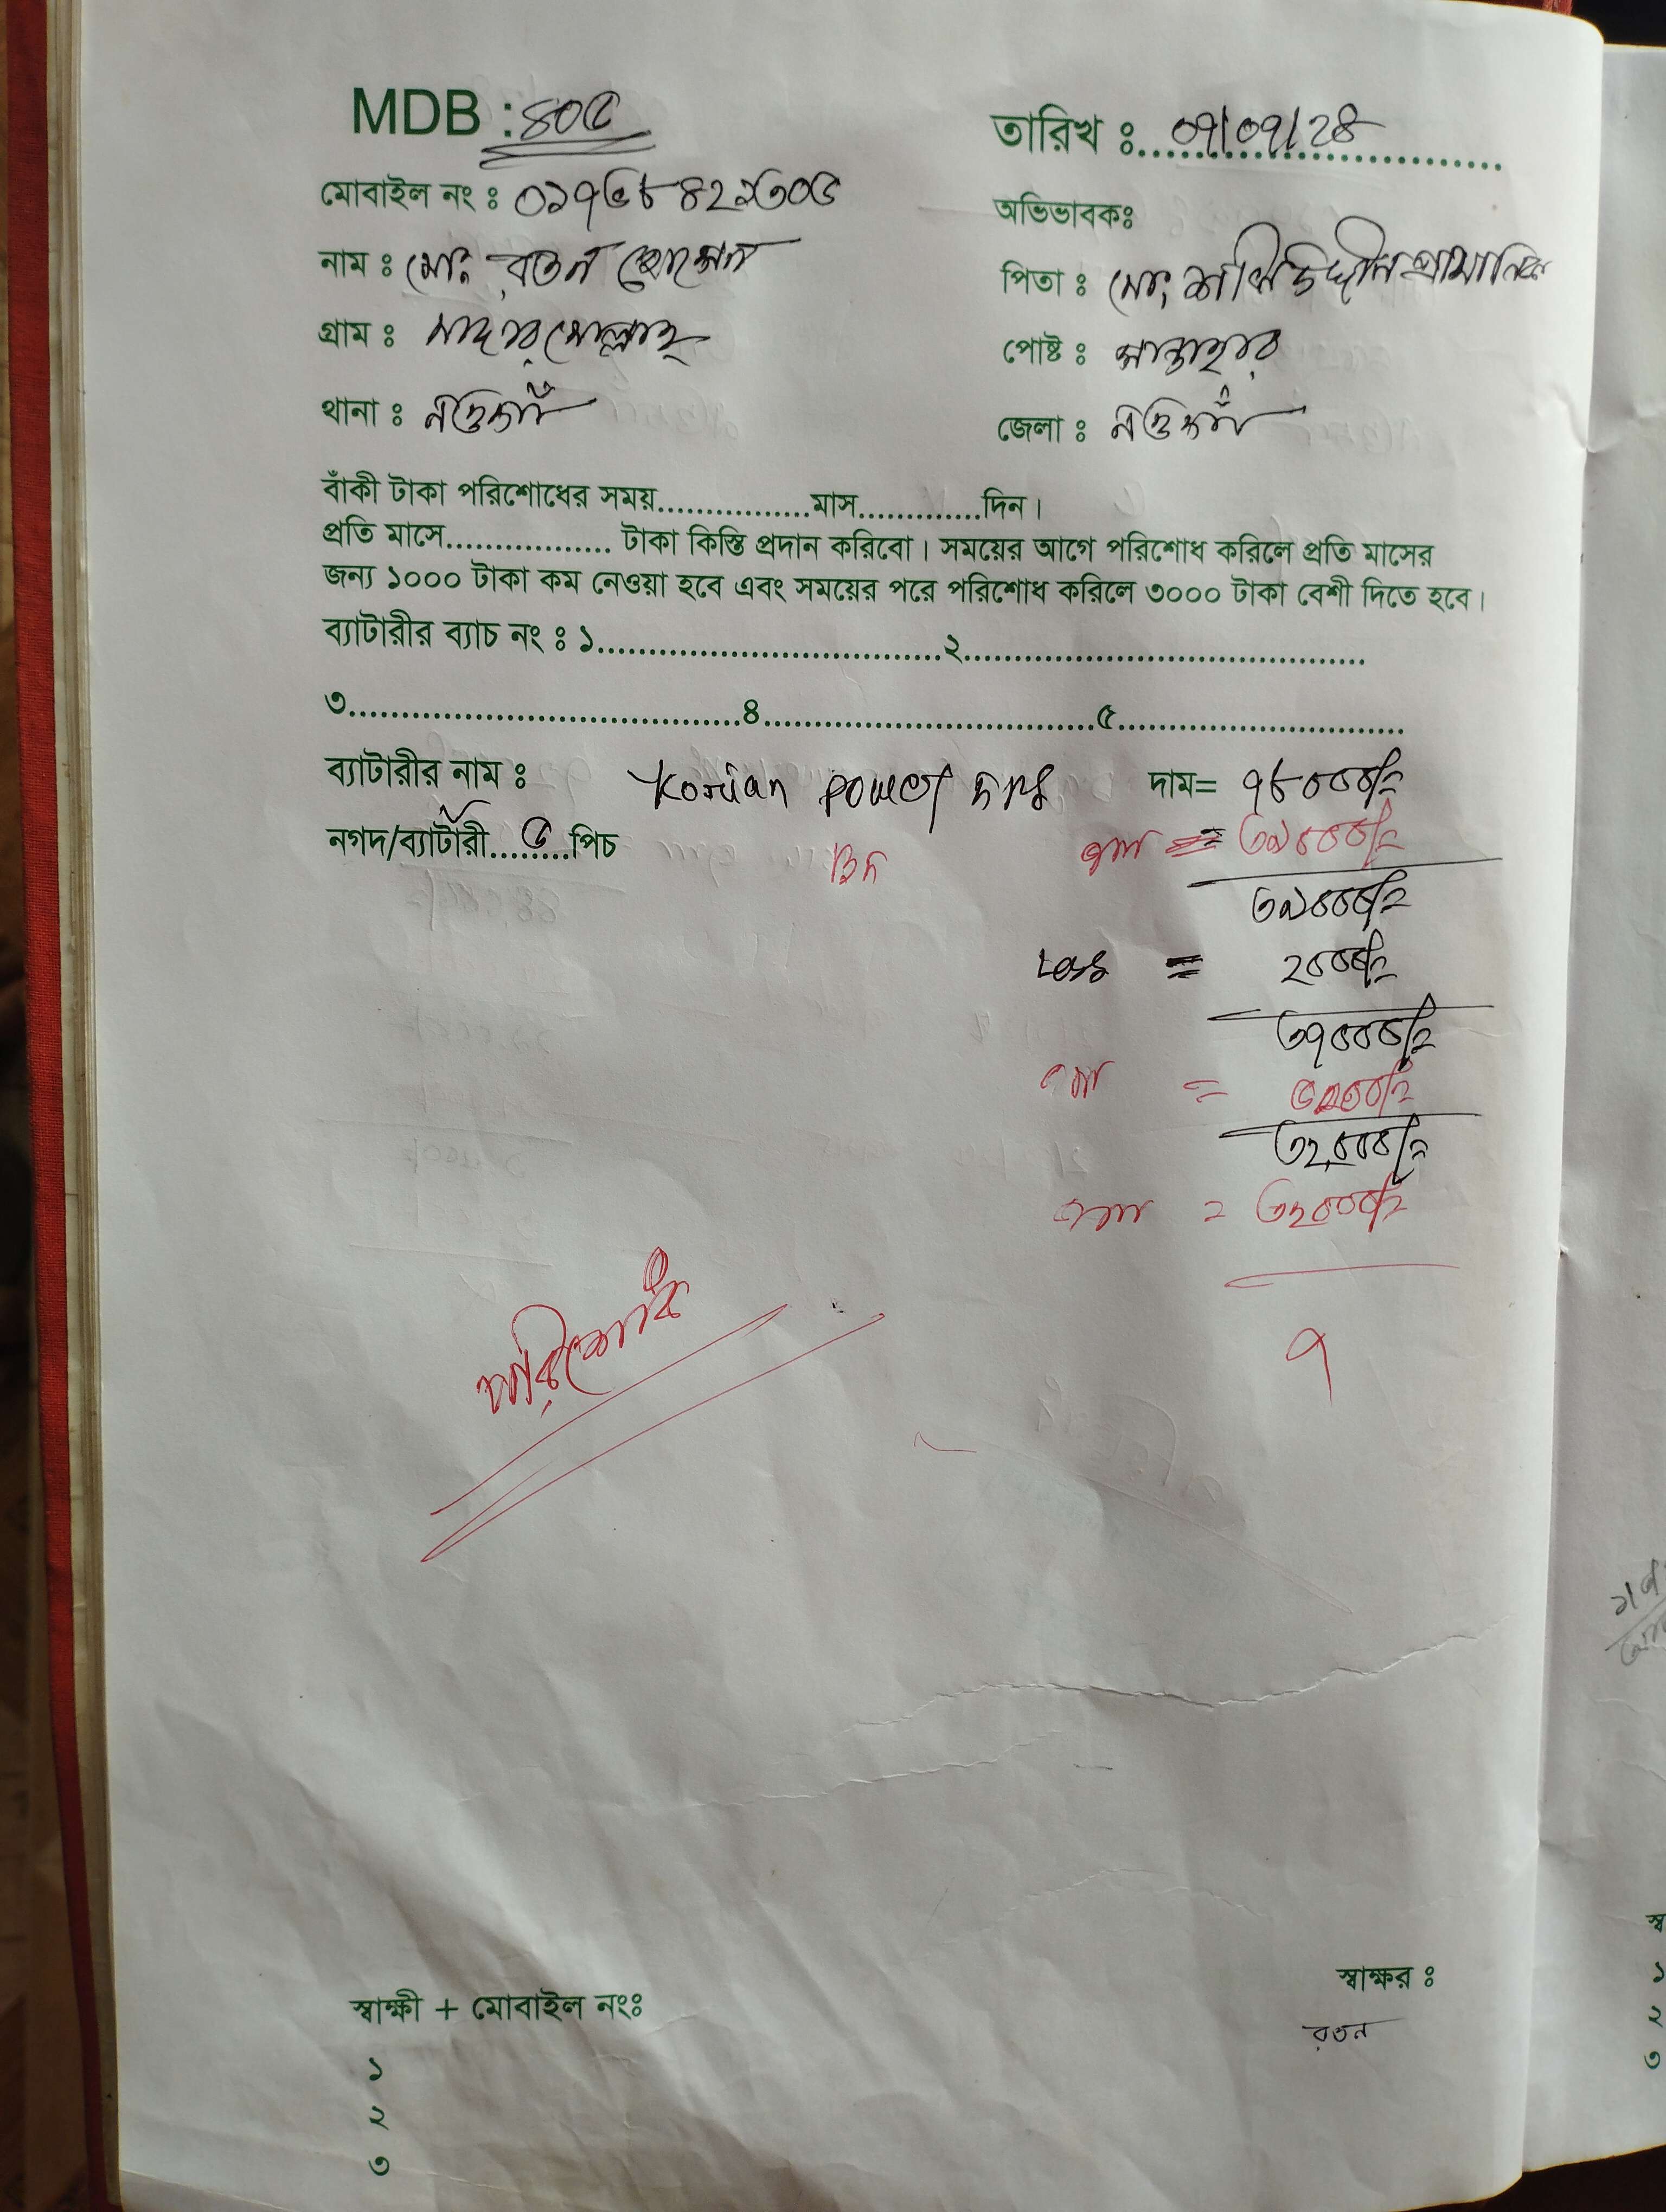 MDB : ৪০৫
তারিখ ঃ ০৭/০৭/২৪
মোবাইল নং ঃ
অভিভাবকঃ
নাম ঃ মোঃ রতন হোসেন
পিতা ঃ মোঃ প্রামানিক
গ্রাম ঃ
পোষ্ট ঃ সান্তাহার
থানা ঃ নওগাঁ
জেলা ঃ নওগাঁ
বাঁকী টাকা পরিশোধের সময়................মাস.............দিন।
প্রতি মাসে................. টাকা কিস্তি প্রদান করিবো। সময়ের আগে পরিশোধ করিলে প্রতি মাসের
জন্য ১০০০ টাকা কম নেওয়া হবে এবং সময়ের পরে পরিশোধ করিলে ৩০০০ টাকা বেশী দিতে হবে।
ব্যাটারীর ব্যাচ নং ঃ ১.................................২......................................
৩.....................................৪...............................৫...........................
ব্যাটারীর নাম ঃ Korian Power দাম= ৭৮০০০/=
নগদ/ব্যাটারী.........পিচ = ৩৯০০০/=
৩৯০০০/=
Less = ২০০০/=
৩৭০০০/=
= ৫০০০/=
৩২,০০০/=
= ৩২০০০/=
পরিশোধ
স্বাক্ষর ঃ
রতন
স্বাক্ষী + মোবাইল নংঃ
১
২
৩